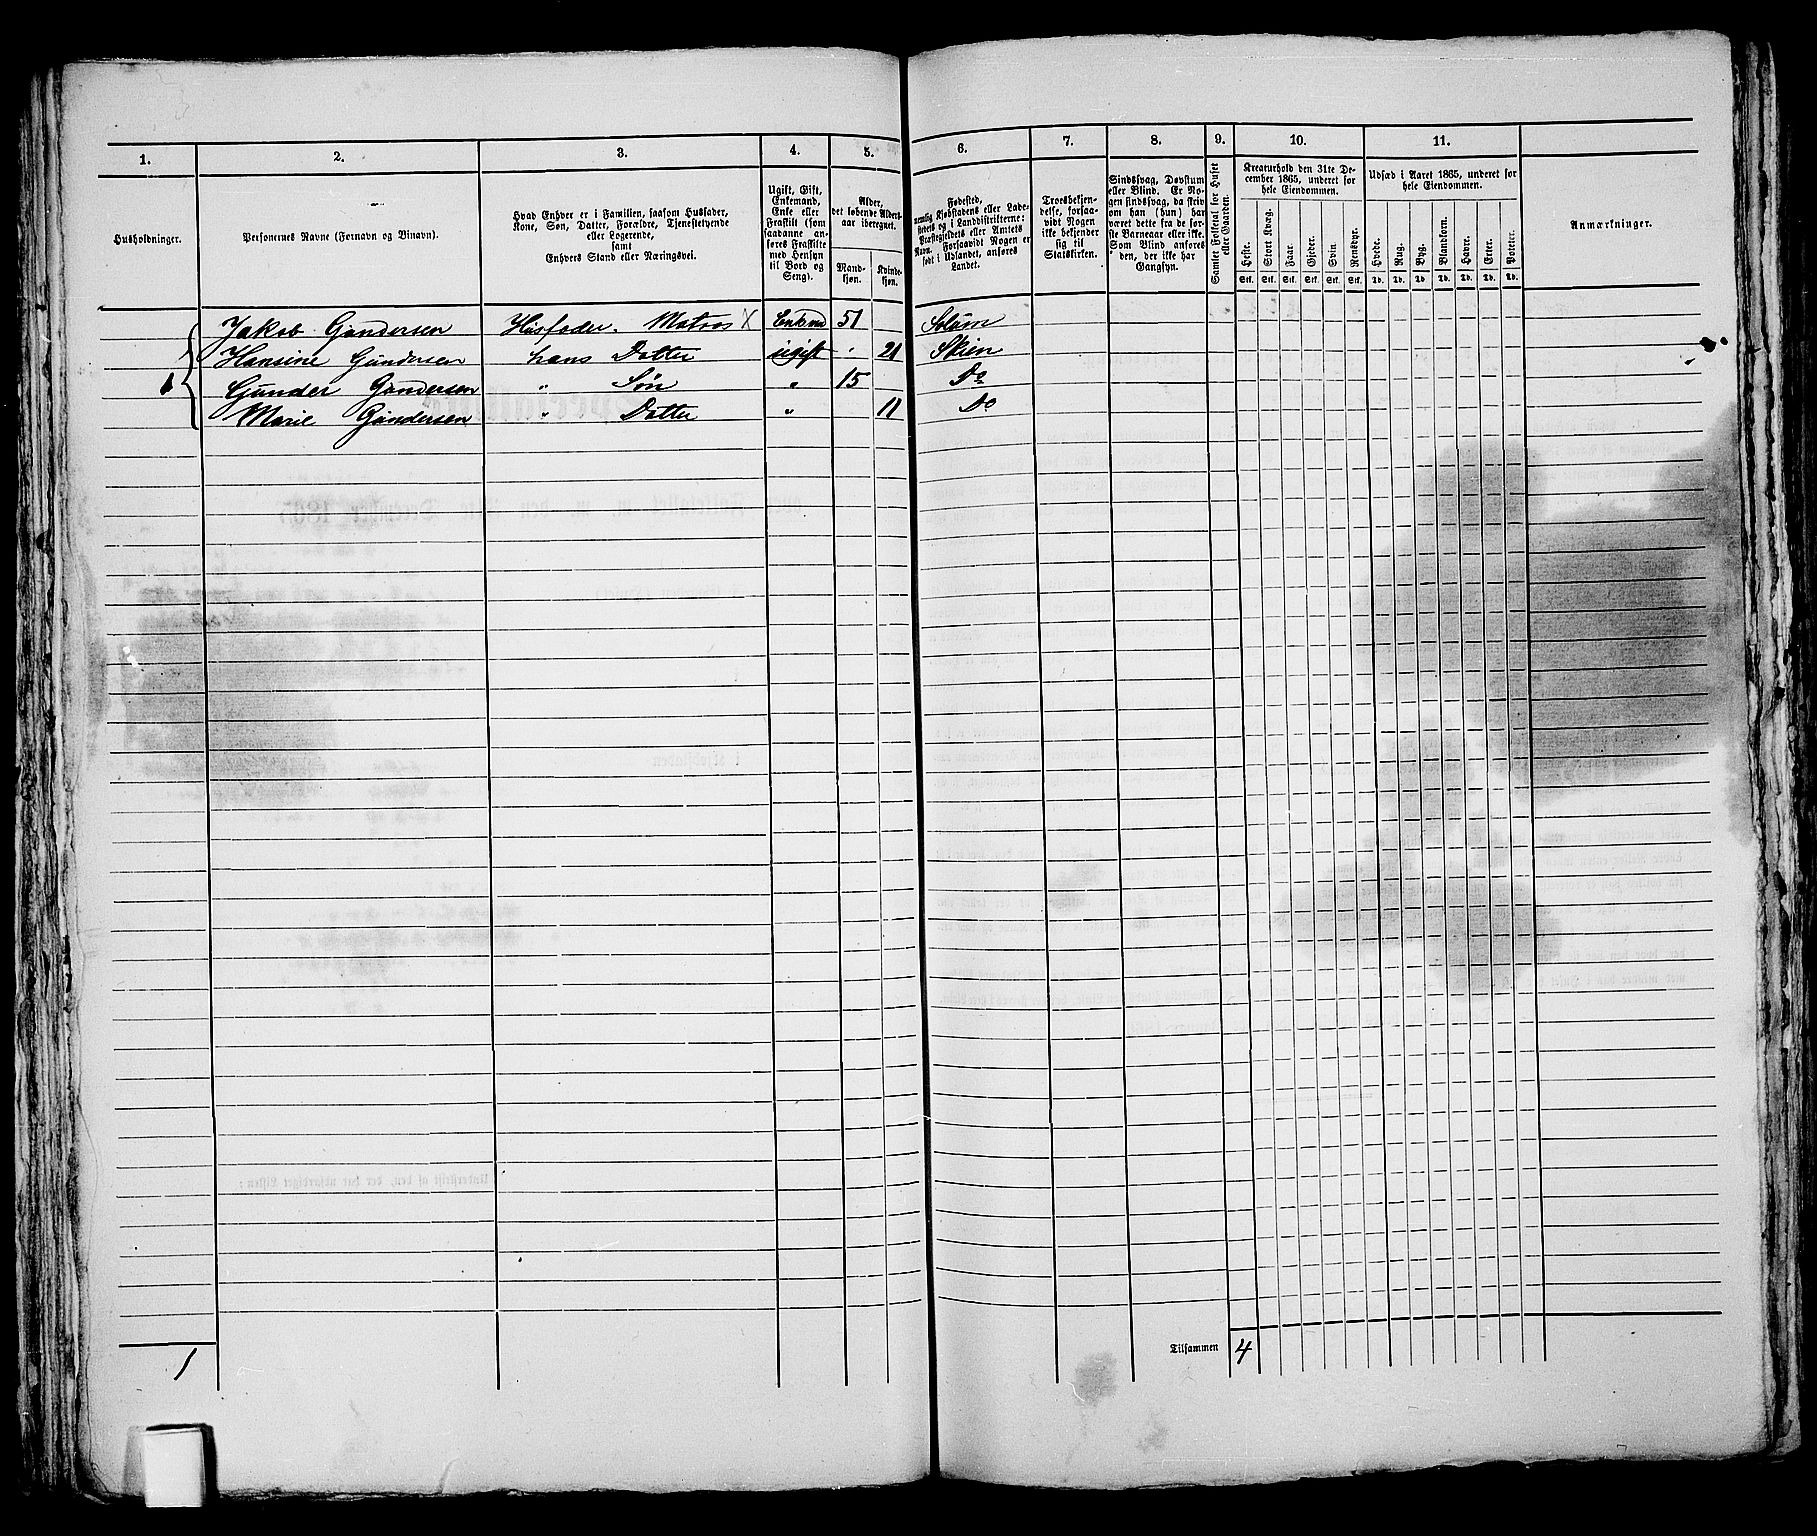 1. 2. 3. 4. 5. 6. 7. 8. 9. 10. 11.
Husholdninger.
Personernes Navne (Fornavn og Tilnavn).
Hvad Enhver er i Familien, saasom Husfader,
Kone, Søn, Datter, Forældre, Tjenestetyende
eller Logerende,
samt
Enhvers Stand eller Næringsvei.
Ugift, Gift,
Enkemand,
Enke eller
Fraskilt (som
saadanne an-
føres Fraskilte
med Hensyn
til Bord og
Seng).
Alder,
det løbende Alders-
aar iberegnet.
Mand-
kjøn.
Kvinde-
kjøn.
Fødested,
nemlig Kjøbstadens eller Lade-
stedets og i Landdistrikterne:
Præstegjeldets eller Amtets
Navn. Forsaavidt Nogen er
født i Udlandet, anføres
Landet.
Troesbekjen-
delse, forsaa-
vidt Nogen
ikke bekjender
sig til
Statskirken.
Sindssvag, Døvstum
eller Blind. Er No-
gen sindssvag, da skriv
om han (hun) har
været dette fra de før-
ste Barneaar eller ikke.
Som Blind anføres
den, der ikke har
Gangsyn.
Samlet Folketal for Huset
eller Gaarden.
Kreaturhold den 31te De-
cember 1865, underet for
hele Eiendommen.
Heste. Stort Kvæg. Faar. Gjeder. Svin. Rensdyr.
Stk. Stk. Stk. Stk. Stk. Stk.
Udsæd i Aaret 1865, underet for
hele Eiendommen.
Hvede. Rug. Byg. Blandkorn. Havre. Erter. Poteter.
Td. Td. Td. Td. Td. Td. Td.
Anmærkninger.
Jakob Gundersen Husfader. Matros X Enkem 51 Solum
Hansine Gundersen hans Datter ugift 21 Skien
1 Gunder Gundersen " Søn " 15 Do
Marie Gundersen " Datter " 11 Do
1 Tilsammen 4